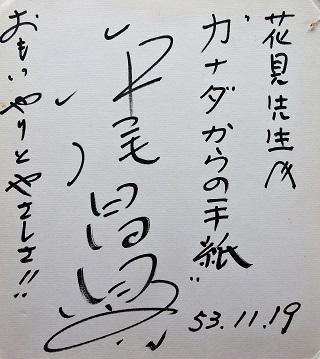 花見先生
"カナダからの手紙"
53.11.19
平尾昌晃
おもいやりとやさしさ!!